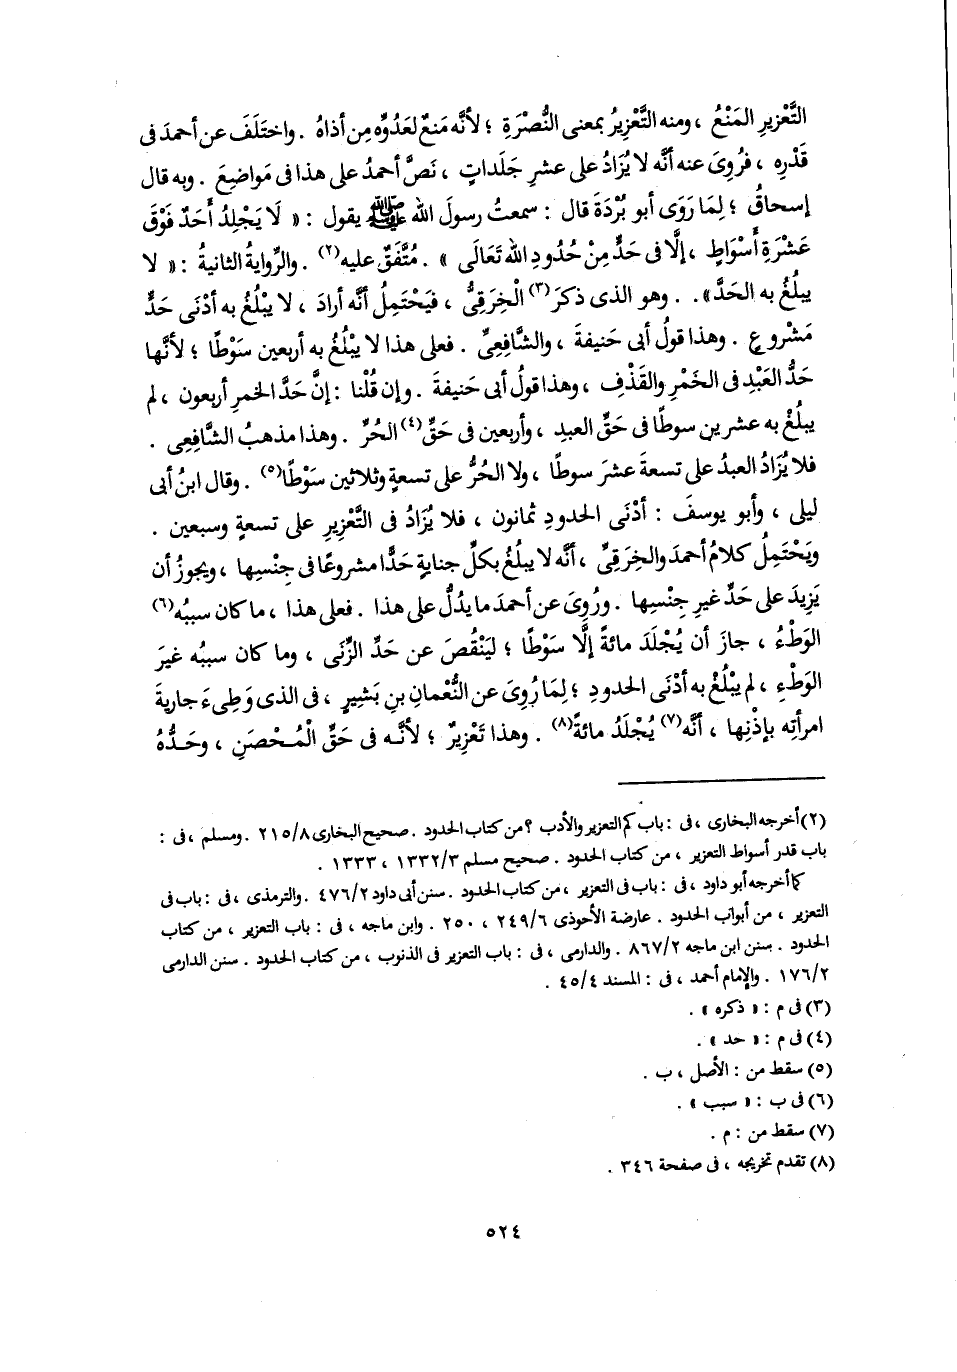 التَّعْزيرِ المَنْعُ ، ومنه التَّعْزِيرُ بمعنى النُّصْرَةِ ؛ لأنَّه مَنعٌ لعَدُوِّه مِن أذاهُ . واختَلَفَ عن أحمدَ فى
قَدْرِه ، فرُوِىَ عنه أنَّه لا يُزَادُ على عشرِ جَلَداتٍ ، نَصَّ أحمدُ على هذا فى مَواضِعَ . وبه قال
إسحاقُ ؛ لِمَا رَوَى أبو بُرْدَةَ قال : سمعتُ رسولَ الله ﷺ يقول : « لَا يَجْلِدُ أَحَدٌ فَوْقَ
عَشْرَةِ أَسْوَاطٍ ، إلَّا فى حَدٍّ مِنْ حُدُودِ الله تَعَالَى » . مُتَّفَقٌ عليه(٢) . والرِّوايةُ الثانيةُ : « لا
يبلُغُ به الحَدَّ» . . وهو الذى ذكرَ(٣) الْخِرَقِىُّ ، فيَحْتَمِلُ أنَّه أرادَ ، لا يبْلُغُ به أدْنَى حَدٍّ
مَشْروعٍ . وهذا قولُ أبى حَنيفةَ ، والشَّافِعِىِّ . فعلى هذا لا يبْلُغُ به أربعين سَوْطًا ؛ لأنَّها
حَدُّ العَبْدِ فى الخَمْرِ والقَذْفِ ، وهذا قولُ أبى حَنيفةَ . وإن قُلْنا : إنَّ حَدَّ الخمرِ أربعون ، لم
يبلُغْ به عشرين سوطًا فى حَقِّ العبدِ ، وأربعين فى حَقِّ(٤) الحُرِّ . وهذا مذهبُ الشَّافِعِى .
فلا يُزَادُ العبدُ على تسعةَ عشرَ سوطًا ، ولا الحُرُّ على تسعةٍ وثلاثين سَوْطًا(٥) . وقال ابنُ أبى
ليلى ، وأبو يوسفَ : أدْنَى الحدودِ ثمانون ، فلا يُزَادُ فى التَّعْزِيرِ على تسعةٍ وسبعين .
ويَحْتَمِلُ كلامُ أحمدَ والخِرَقِىِّ ، أنَّه لا يبلُغُ بكلِّ جنايةٍ حَدًّا مشروعًا فى جِنْسِها ، ويجوزُ أن
يَزِيدَ على حَدٍّ غيرِ جِنْسِها . ورُوِىَ عن أحمدَ ما يدُلُّ على هذا . فعلى هذا ، ما كان سببُه(٦)
الوَطْءُ ، جازَ أن يُجْلَدَ مائةً إلَّا سَوْطًا ؛ ليَنْقُصَ عن حَدِّ الزِّنَى ، وما كان سببُه غيرَ
الوَطْءِ ، لم يبْلُغْ به أدْنَى الحدودِ ؛ لِمَا رُوِىَ عن النُّعْمانِ بنِ بَشيرٍ ، فى الذى وَطِىءَ جاريةَ
امرأتِه بإذْنِها ، أنَّه(٧) يُجْلَدُ مائةً(٨) . وهذا تَعْزِيرٌ ؛ لأنَّه فى حَقِّ الْمُحْصَنِ ، وحَدُّهُ
(٢) أخرجه البخارى ، فى : باب كم التعزير والأدب ؟ من كتاب الحدود . صحيح البخارى ٨/٢١٥ . ومسلم ، فى :
باب قدر أسواط التعزير ، من كتاب الحدود . صحيح مسلم ٣/١٣٣٢ ، ١٣٣٣ .
كما أخرجه أبو داود ، فى : باب فى التعزير ، من كتاب الحدود . سنن أبى داود ٢/٤٧٦ . والترمذى ، فى : باب فى
التعزير ، من أبواب الحدود . عارضة الأحوذى ٦/٢٤٩ ، ٢٥٠ . وابن ماجه ، فى : باب التعزير ، من كتاب
الحدود . سنن ابن ماجه ٢/٨٦٧ . والدارمى ، فى : باب التعزير فى الذنوب ، من كتاب الحدود . سنن الدارمى
٢/١٧٦ . والإمام أحمد ، فى : المسند ٤/٤٥ .
(٣) فى م : « ذكره » .
(٤) فى م : « حد » .
(٥) سقط من : الأصل ، ب .
(٦) فى ب : « سبب » .
(٧) سقط من : م .
(٨) تقدم تخريجه ، فى صفحة ٣٤٦ .
٥٢٤